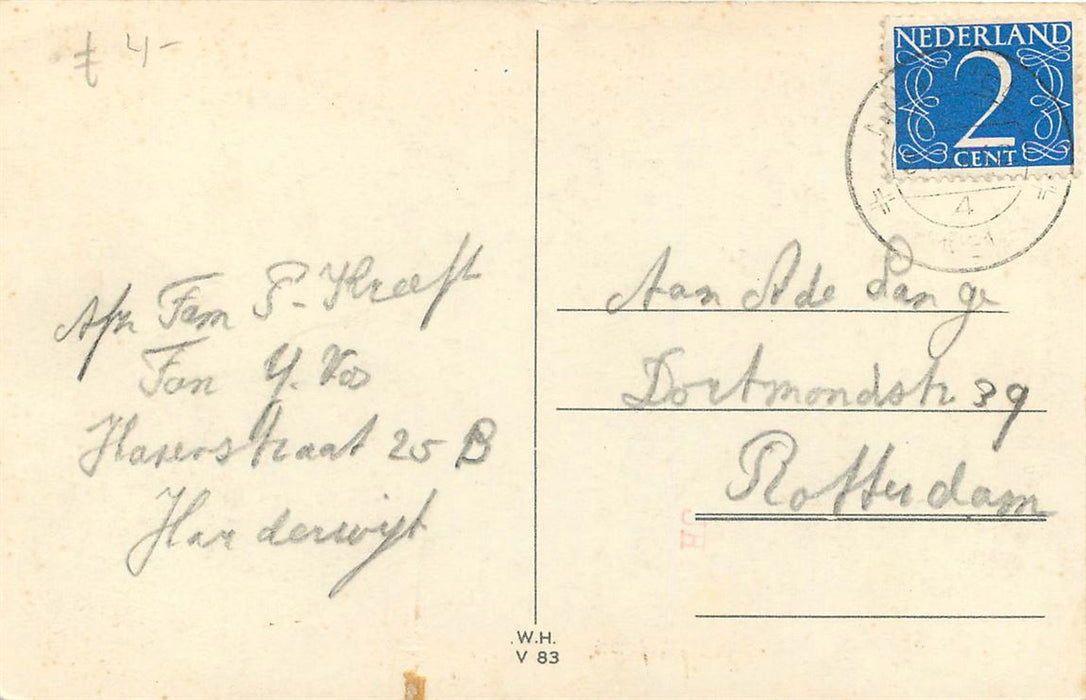 £ 4-
NEDERLAND
2
CENT
4
Afz Fam P. Kreeft
Fam Y. Vos
Havenstraat 25 B
Harderwijk
Aan A de Lange
Dortmondstr 39
Rotterdam
W.H.
V 83